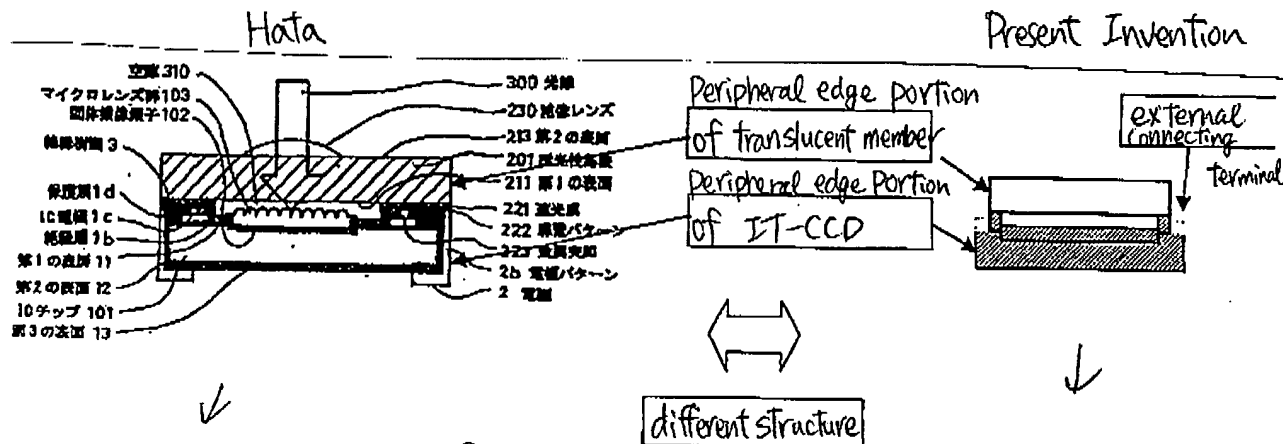 Hata
Present Invention
空隙 310
マイクロレンズ群 103
固体撮像素子 102
絶縁樹脂 3
保護膜 1d
IC電極 1c
絶縁層 1b
第1の表面 11
第2の表面 12
ICチップ 101
第3の表面 13
300 光線
230 結像レンズ
213 第2の表面
201 透光性基板
211 第1の表面
221 遮光膜
222 導電パターン
223 金属突起
2b 電極パターン
2 電極
Peripheral edge portion
of translucent member
Peripheral edge Portion
of IT-CCD
external
connecting
terminal
different structure